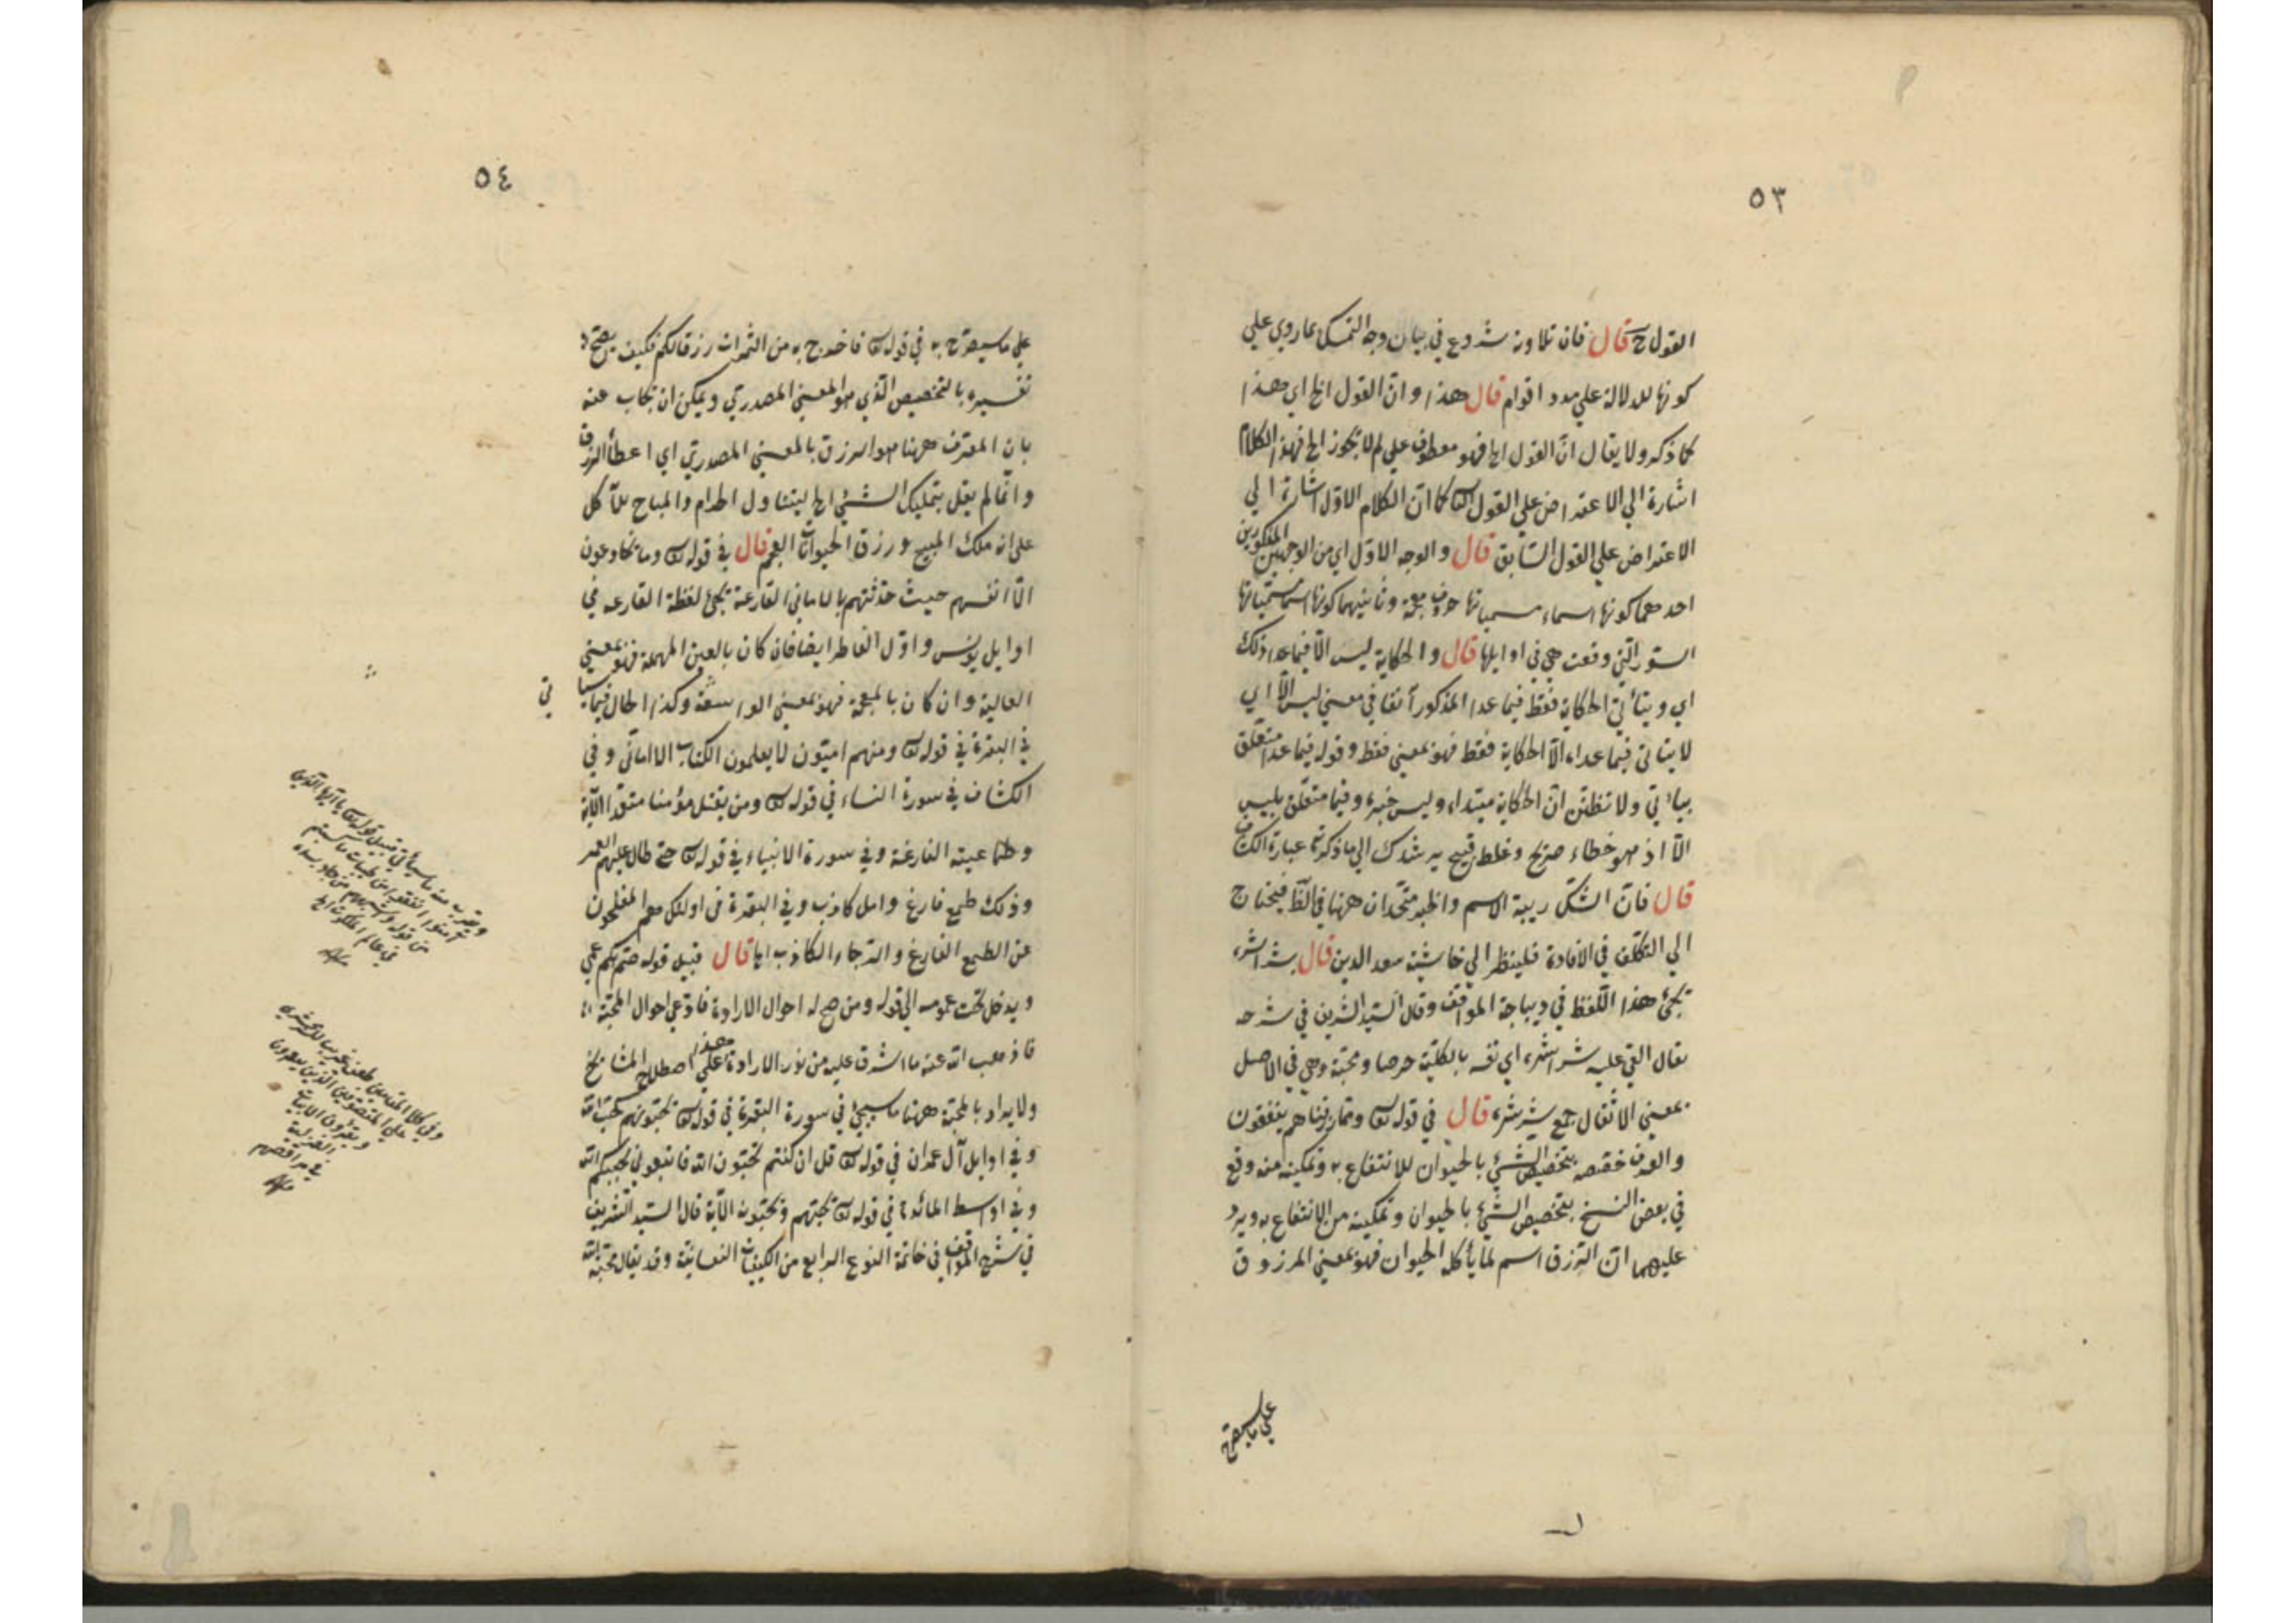 ٥٣
القول ح قال فان تلاوته شروع في بيان وجه التمسك بما روي علي
كونها للدلالة علي مدد اقوام قال هذا وانّ القول الخ اي هذا
كما ذكر ولا يقال انّ القول الخ فهو معطوف علي لم لا يجوز الخ فهذا الكلام
اشارة الي الاعتراض علي القول الثاني كما انّ الكلام الاوّل اشارة الي
الاعتراض علي القول السّابق قال والوجه الاوّل اي من الوجهين المذكورين
احدهما كونها اسماء مسمياتها حروف معجمة وثانيهما كونها اسما مسمّياتها
السّور الّتي وقعت هي في اوايلها قال والحكاية ليس الّا فيما عدا ذلك
اي ويتأتّي الحكاية فقط فيما عدا المذكور آنفا في معني ليس الّا اي
لا يتأتي فيما عداه الّا الحكاية فقط فهو بمعني فقط وقوله فيما عدا متعلّق
بيتأتي ولا تظنّن انّ الحكاية مبتداء وليس خبره وفيما متعلّق بليس
الّا اذ هو خطاء صريح وغلط قبيح يرشدك الي ما ذكرته عبارة الكشاف
قال فانّ الشكّ ريبة الاسم والخبر متّحدان ههنا في اللّفظ فيحتاج
الي التكلّف في الافادة فلينظر الي حاشية سعد الدين قال بشراشره
يجئ هذا اللّفظ في ديباجة المواقف وقال السّيد الشريف في شرحه
يقال القي عليه شراشره اي نفسه بالكلّية حرصا ومحبّة وهي في الاصل
بمعني الاثقال جمع شرشره قال في قوله تعالى وممّا رزقناهم ينفقون
والعرف خصّصه بتخصيص الشّيئ بالحيوان للانتفاع به وتمكينه منه وقع
في بعض النسخ بتخصيص الشّيئ بالحيوان وتمكينه من الانتفاع به ويرد
عليهما انّ الرّزق اسم لما يأكله الحيوان فهو بمعني المرزوق
علي ما سيصرّح
٥٤
علي ما سيصرّح به في قوله تعالى فاخرج به من الثّمرات رزقا لكم فكيف يصحّ
تفسيره بالتخصيص الّذي هو المعني المصدريّ ويمكن ان يجاب عنه
بان المعرّف ههنا هو الرزق بالمعني المصدريّ اي اعطأ الرزق
وانّما لم يقل بتمليك الشّيئ الخ ليتناول الحرام والمباح للآكل
علي انه ملك المبيح ورزق الحيوانات العجم قال في قوله تعالى وما يخادعون
الّا انفسهم حيث حدّثتهم بالاماني الفارغة يجئ لفظة الفارعه في
اوايل يونس واوّل الفاطر ايضا فان كان بالعين المهملة فهو بمعني
العالية وان كان بالمعجمة فهو بمعني الواسعة وكذا الحال فيما سيأتي
في البقرة في قوله تعالى ومنهم اميّون لا يعلمون الكتاب الا امانّي وفي
الكشاف في سورة النساء في قوله تعالى ومن يقتل مؤمنا متعمّدا الآية
وطماعيته الفارغة وفي سورة الانبياء في قوله تعالى حتّي طال عليهم العمر
وذلك طمع فارغ وامل كاذب وفي البقرة في اولئك هم المفلحون
عن الطمع الفارغ والرّجاء الكاذب الخ قال قبيل قوله صمّ بكم عمي
ويدخل تحت عمومه الي قوله ومن صحّ له احوال الارادة فادّعي احوال المحبّة
فاذهب الله عنه ما اشرق عليه من نور الارادة هذا علي اصطلاح المشايخ
ولا يراد بالمحبّة ههنا ما سيجئ في سورة البقرة في قوله تعالى يحبّونهم كحبّ الله
وفي اوايل آل عمران في قوله تعالى قل ان كنتم تحبّون الله فاتبعوني يحببكم الله
وفي اواسط المائدة في قوله تعالى يحبّهم ويحبّونه الآية قال السّيد الشّريف
في شرح المواقف في خاتمة النوع الرابع من الكيفيّات النفسانيّة وقد يقال محبّة الله